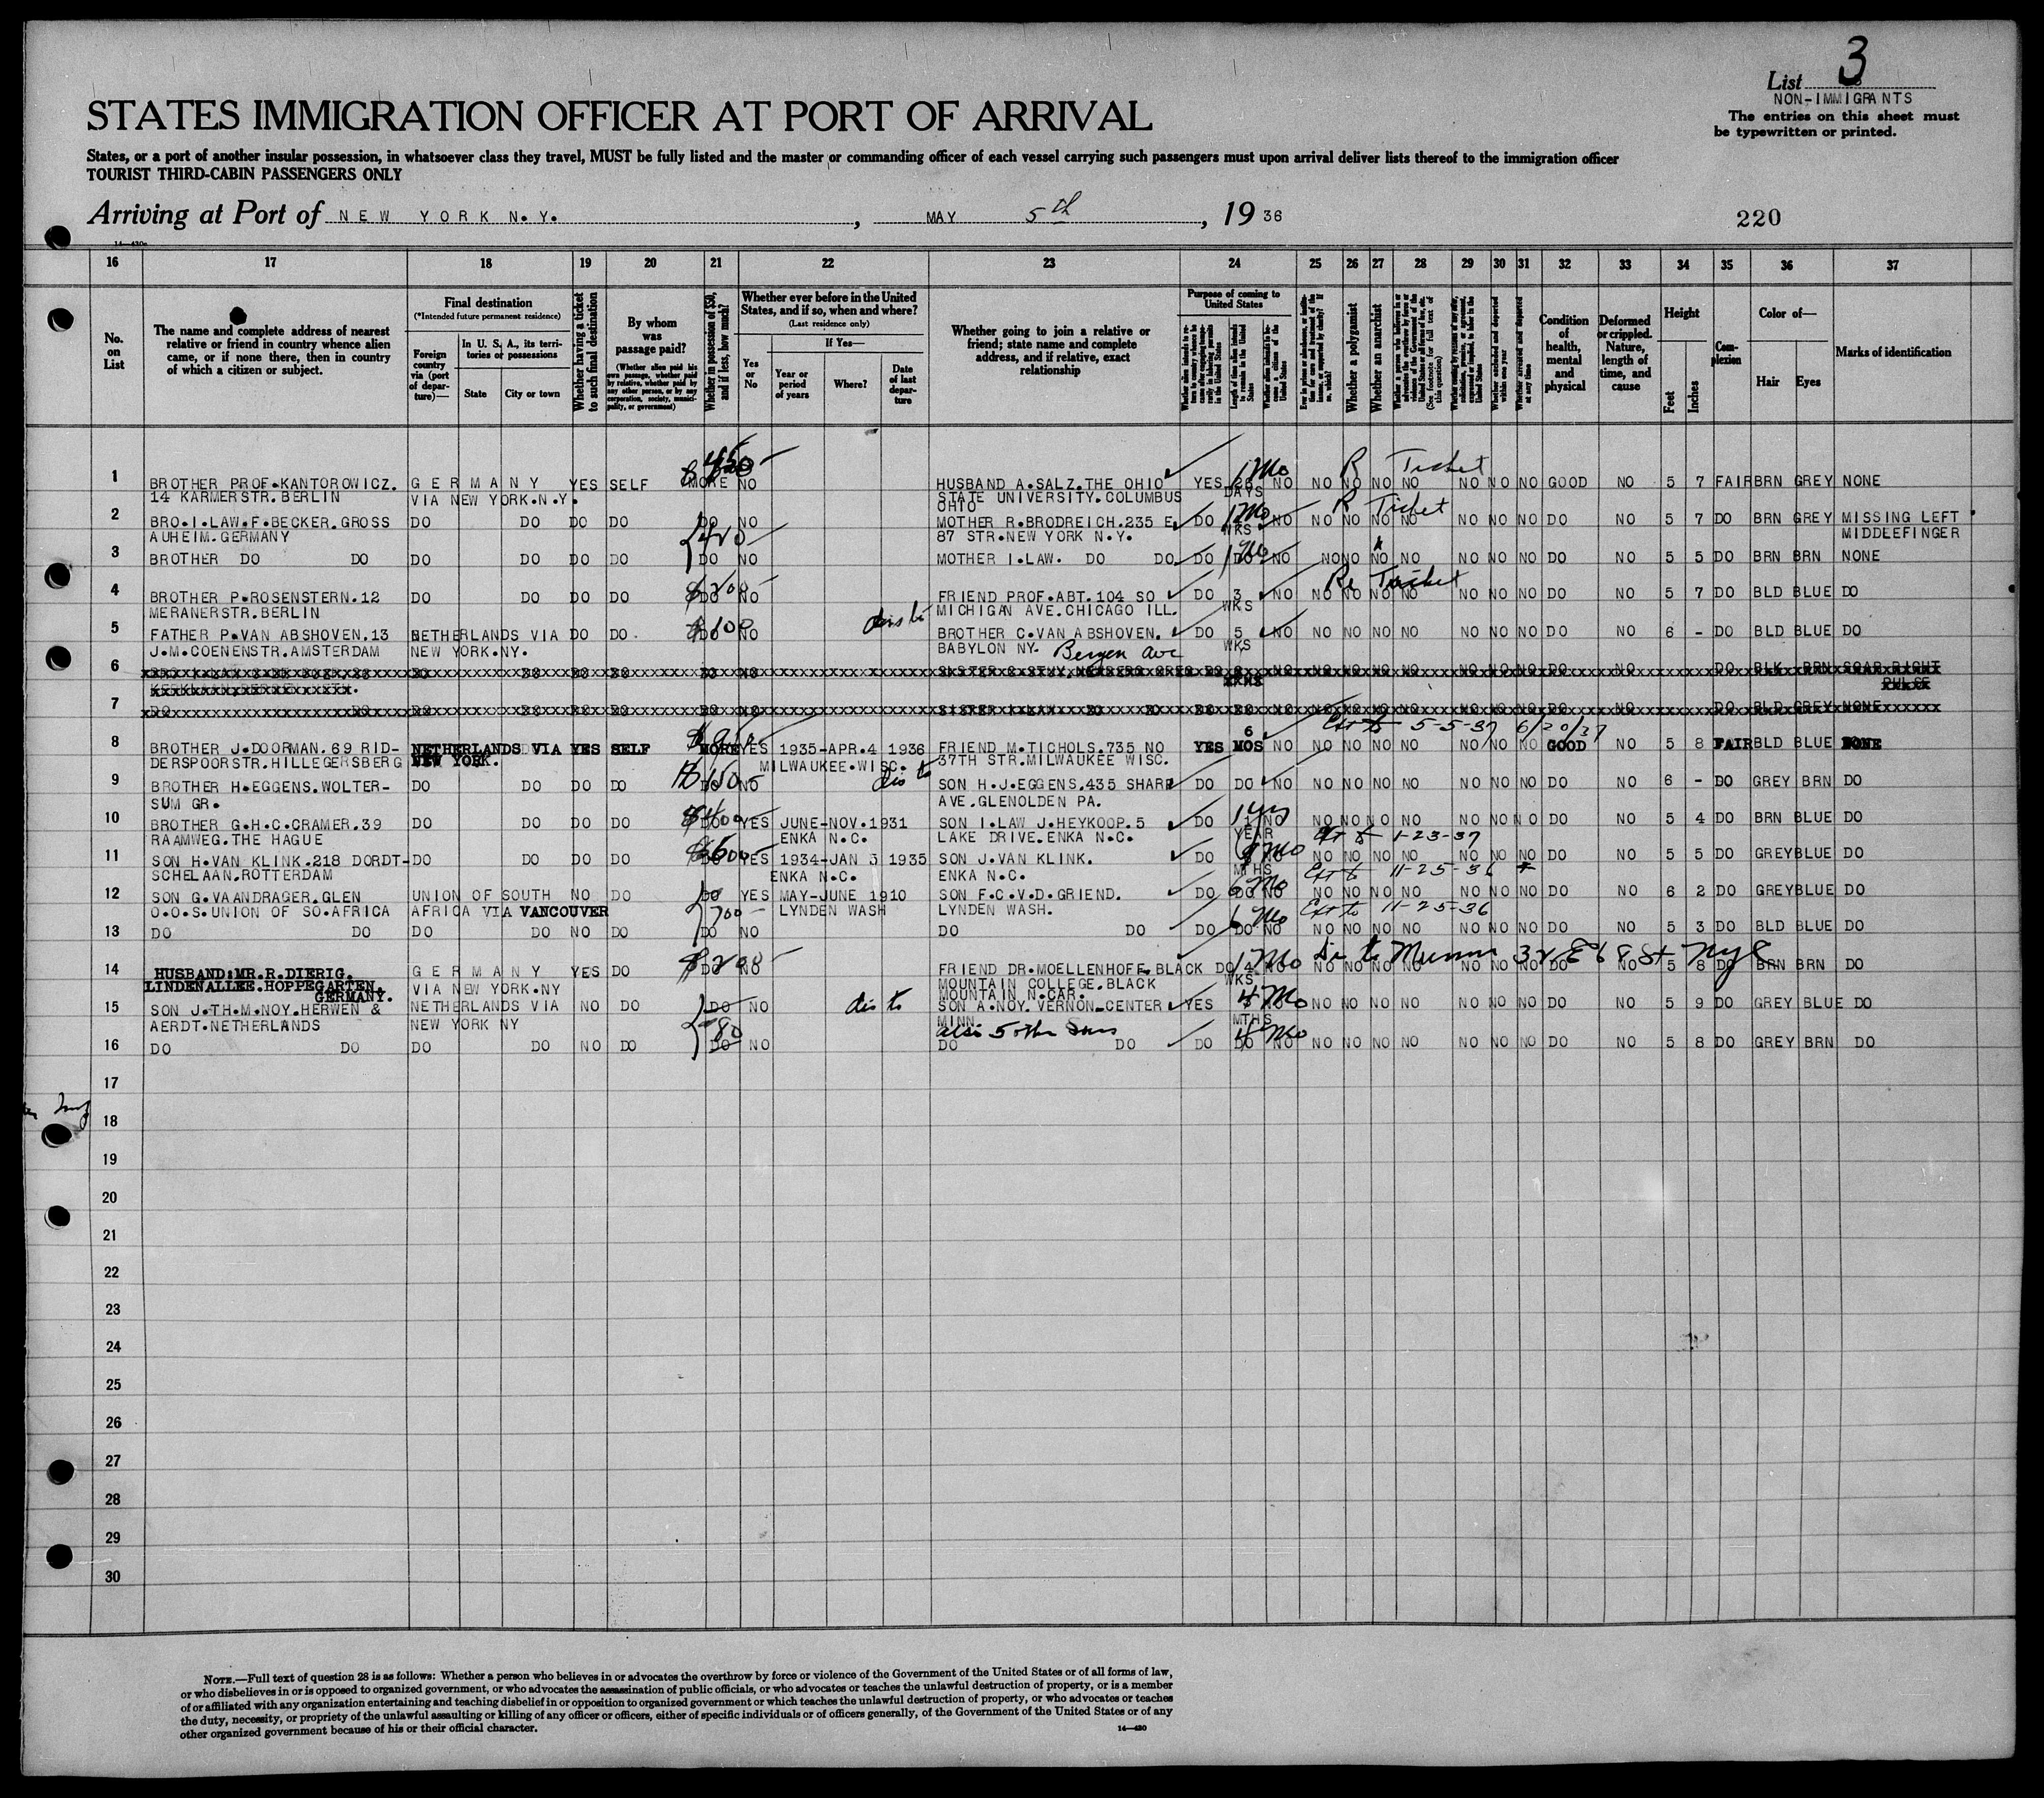 3
List
NON-IMMIGRANTS
The entries on this sheet must
be typewritten or printed.
STATES IMMIGRATION OFFICER AT PORT OF ARRIVAL
States, or a port of another insular possession, in whatsoever class they travel, MUST be fully listed and the master or commanding officer of each vessel carrying such passengers must upon arrival deliver lists thereof to the immigration officer
TOURIST THIRD-CABIN PASSENGERS ONLY
Arriving at Port of NEW YORK N.Y. , MAY 5th , 19 36
220
16 17 18 19 20 21 22 23 24 25 26 27 28 29 30 31 32 33 34 35 36 37
No. on List
The name and complete address of nearest relative or friend in country whence alien came, or if none there, then in country of which a citizen or subject.
Final destination
(*Intended future permanent residence)
Foreign country via (port of departure)—
In U. S. A., its territories or possessions
State
City or town
Whether having a ticket to such final destination
By whom was passage paid?
(Whether alien paid his own passage, whether paid by relative, whether paid by any other person, or by any corporation, society, municipality, or government)
Whether in possession of $50, and if less, how much?
Whether ever before in the United States, and if so, when and where?
(Last residence only)
Yes or No
If Yes—
Year or period of years
Where?
Date of last departure
Whether going to join a relative or friend; state name and complete address, and if relative, exact relationship
Purpose of coming to United States
Length of time alien intends to remain in the United States
Whether a polygamist
Whether an anarchist
(See footnote for full text of this question)
Whether excluded and deported within one year
Whether arrested and deported at any time
Condition of health, mental and physical
Deformed or crippled. Nature, length of time, and cause
Height
Feet
Inches
Complexion
Color of—
Hair
Eyes
Marks of identification
R Ticket
1 BROTHER PROF.KANTOROWICZ. GERMANY YES SELF MORE NO HUSBAND A.SALZ.THE OHIO YES 1Mo NO NO NO NO NO NO NO NO GOOD NO 5 7 FAIR BRN GREY NONE
14 KARMERSTR.BERLIN VIA NEW YORK.N.Y. STATE UNIVERSITY.COLUMBUS DAYS
OHIO R Ticket
2 BRO.I.LAW.F.BECKER.GROSS DO DO DO DO DO NO MOTHER R.BRODREICH.235 E. DO 1Mo NO NO NO NO NO NO NO NO DO NO 5 7 DO BRN GREY MISSING LEFT
AUHEIM.GERMANY 420 87 STR.NEW YORK N.Y. WKS MIDDLEFINGER
3 BROTHER DO DO DO DO DO DO DO NO MOTHER I.LAW. DO DO DO DO 1Mo NO NO NO NO NO NO NO NO DO NO 5 5 DO BRN BRN NONE
$200 Re Ticket
4 BROTHER P.ROSENSTERN.12 DO DO DO DO DO NO FRIEND PROF.ABT.104 SO DO 3 NO NO NO NO NO NO NO NO DO NO 5 7 DO BLD BLUE DO
MERANERSTR.BERLIN MICHIGAN AVE.CHICAGO ILL. WKS
5 FATHER P.VAN ABSHOVEN.13 NETHERLANDS VIA DO DO NO BROTHER C.VAN ABSHOVEN. DO 5 NO NO NO NO NO NO NO NO DO NO 6 - DO BLD BLUE DO
J.M.COENENSTR.AMSTERDAM NEW YORK.NY. BABYLON NY. Bergen Ave WKS
6
7
6 Ext to 5-5-37 6/20/37
8 BROTHER J.DOORMAN.69 RID- NETHERLANDS VIA YES SELF MORE YES 1935-APR.4 1936 FRIEND M.TICHOLS.735 NO YES MOS NO NO NO NO NO NO NO NO GOOD NO 5 8 FAIR BLD BLUE NONE
DERSPOORSTR.HILLEGERSBERG NEW YORK. MILWAUKEE.WISC. 37TH STR.MILWAUKEE WISC.
9 BROTHER H.EGGENS.WOLTER- DO DO DO DO 150 NO dis to SON H.J.EGGENS.435 SHARP DO DO NO NO NO NO NO NO NO NO DO NO 6 - DO GREY BRN DO
SUM GR. AVE.GLENOLDEN PA.
10 BROTHER G.H.C.CRAMER.39 DO DO DO DO $400 YES JUNE-NOV.1931 SON I.LAW J.HEYKOOP.5 DO 1 NO NO NO NO NO NO NO NO DO NO 5 4 DO BRN BLUE DO
RAAMWEG.THE HAGUE ENKA N.C. LAKE DRIVE.ENKA N.C. YEAR Ext to 1-23-37
11 SON H.VAN KLINK.218 DORDT- DO DO DO DO $600 YES 1934-JAN 3 1935 SON J.VAN KLINK. DO Mo NO NO NO NO NO NO NO NO DO NO 5 5 DO GREY BLUE DO
SCHELAAN.ROTTERDAM ENKA N.C. ENKA N.C. MTHS Ext to 11-25-36
12 SON G.VAANDRAGER.GLEN UNION OF SOUTH NO DO DO YES MAY-JUNE 1910 SON F.C.V.D.GRIEND. DO DO 6Mo NO NO NO NO NO NO NO NO DO NO 6 2 DO GREY BLUE DO
O.O.S.UNION OF SO.AFRICA AFRICA VIA VANCOUVER 700 LYNDEN WASH LYNDEN WASH. Ext to 11-25-36
13 DO DO DO DO NO DO DO NO DO DO DO DO 6 Mo NO NO NO NO NO NO NO NO DO NO 5 3 DO BLD BLUE DO
14 HUSBAND:MR.R.DIERIG. GERMANY YES DO $200 NO FRIEND DR.MOELLENHOFF.BLACK DO 4 1Mo NO NO NO NO NO NO NO DO NO 5 8 DO BRN BRN DO
LINDENALLEE.HOPPEGARTEN. VIA NEW YORK.NY MOUNTAIN COLLEGE.BLACK WKS
GERMANY. MOUNTAIN N.CAR.
15 SON J.TH.M.NOY.HERWEN & NETHERLANDS VIA NO DO DO NO dis to SON A.NOY.VERNON-CENTER YES 4 Mo NO NO NO NO NO NO NO DO NO 5 9 DO GREY BLUE DO
AERDT.NETHERLANDS NEW YORK NY 80 MINN. MTHS
also 5 other Sons
16 DO DO DO DO NO DO DO NO DO DO DO DO 4 Mo NO NO NO NO NO NO NO NO DO NO 5 8 DO GREY BRN DO
17
18
19
20
21
22
23
24
25
26
27
28
29
30
NOTE.—Full text of question 28 is as follows: Whether a person who believes in or advocates the overthrow by force or violence of the Government of the United States or of all forms of law,
or who disbelieves in or is opposed to organized government, or who advocates the assassination of public officials, or who advocates or teaches the unlawful destruction of property, or is a member
of or affiliated with any organization entertaining and teaching disbelief in or opposition to organized government or which teaches the unlawful destruction of property, or who advocates or teaches
the duty, necessity, or propriety of the unlawful assaulting or killing of any officer or officers, either of specific individuals or of officers generally, of the Government of the United States or of any
other organized government because of his or their official character.
14—430